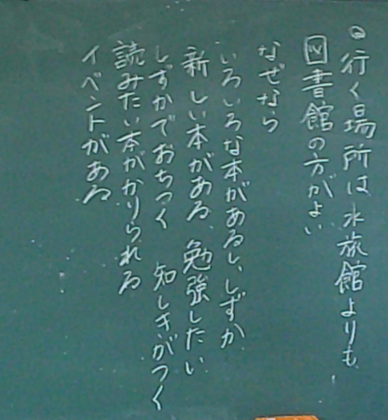 ◎行く場所は水旅館よりも
図書館の方がよい
なぜなら
いろいろな本があるし、しずか
新しい本がある、勉強したい
しずかでおちつく 知しきがつく
読みたい本がかりられる
イベントがある